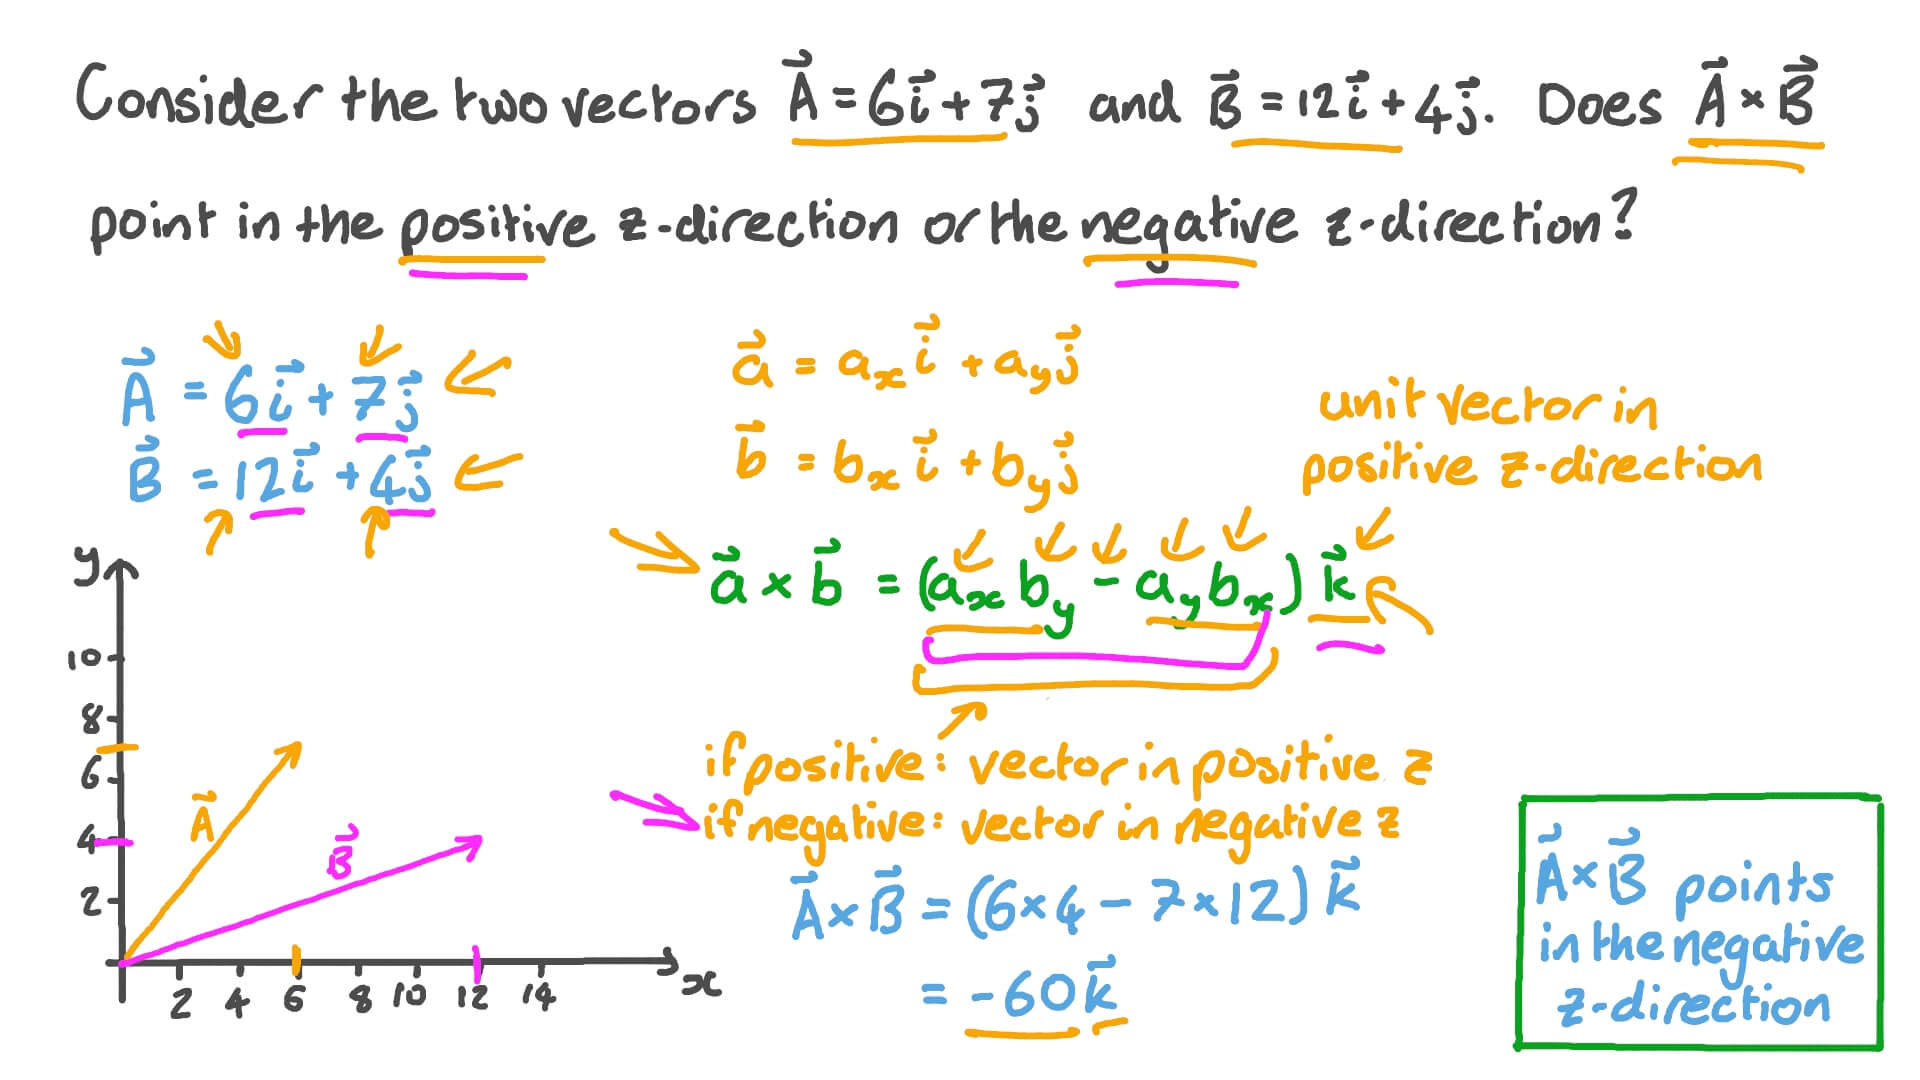 Consider the two vectors A⃗ = 6i⃗ + 7j⃗ and B⃗ = 12i⃗ + 4j⃗. Does A⃗ × B⃗
point in the positive z-direction or the negative z-direction?
A⃗ = 6i⃗ + 7j⃗
B⃗ = 12i⃗ + 4j⃗
a⃗ = aₓ i⃗ + a_y j⃗
b⃗ = bₓ i⃗ + b_y j⃗
unit vector in
positive z-direction
a⃗ × b⃗ = (aₓ b_y - a_y bₓ) k⃗
if positive: vector in positive z
if negative: vector in negative z
A⃗ × B⃗ = (6 × 4 - 7 × 12) k⃗
= -60k⃗
y
10
8
6
4
2
A⃗
B⃗
2 4 6 8 10 12 14
x
A⃗ × B⃗ points
in the negative
z-direction